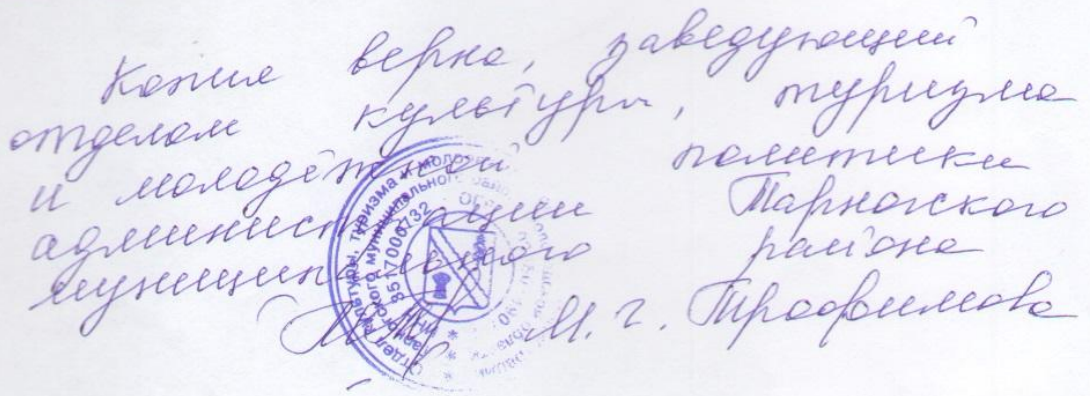 Копия верна, заведующий
отделом культуры, туризма
и молодёжной политики
администрации Тарногского
муниципального района
М. Г. Трофимова
Отдел культуры, туризма и молодёж
Тарногского муниципального района
3517000732